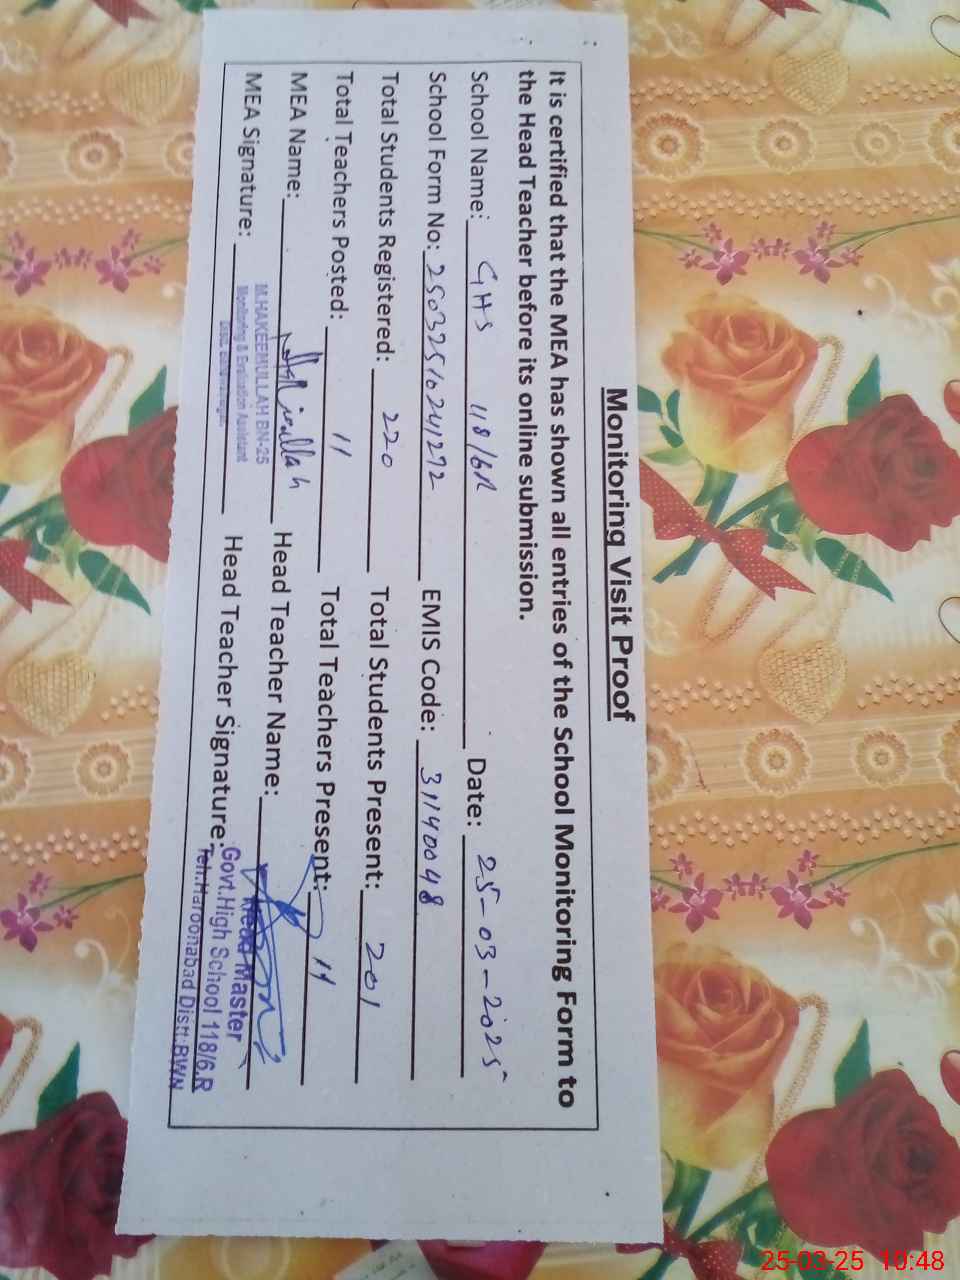 Monitoring Visit Proof
It is certified that the MEA has shown all entries of the School Monitoring Form to
the Head Teacher before its online submission.
School Name: GHS 118/6R Date: 25-03-2025
School Form No: 25032510241272 EMIS Code: 31140048
Total Students Registered: 220 Total Students Present: 201
Total Teachers Posted: 11 Total Teachers Present: 11
MEA Name: Head Teacher Name:
MEA Signature: Head Teacher Signature:
M.HAKEEMULLAH BN-25
Monitoring & Evaluation Assistant
Distt. Bahawalnagar.
Head Master
Govt.High School 118/6.R
Teh:Haroonabad Distt:BWN
25-03-25 10:48